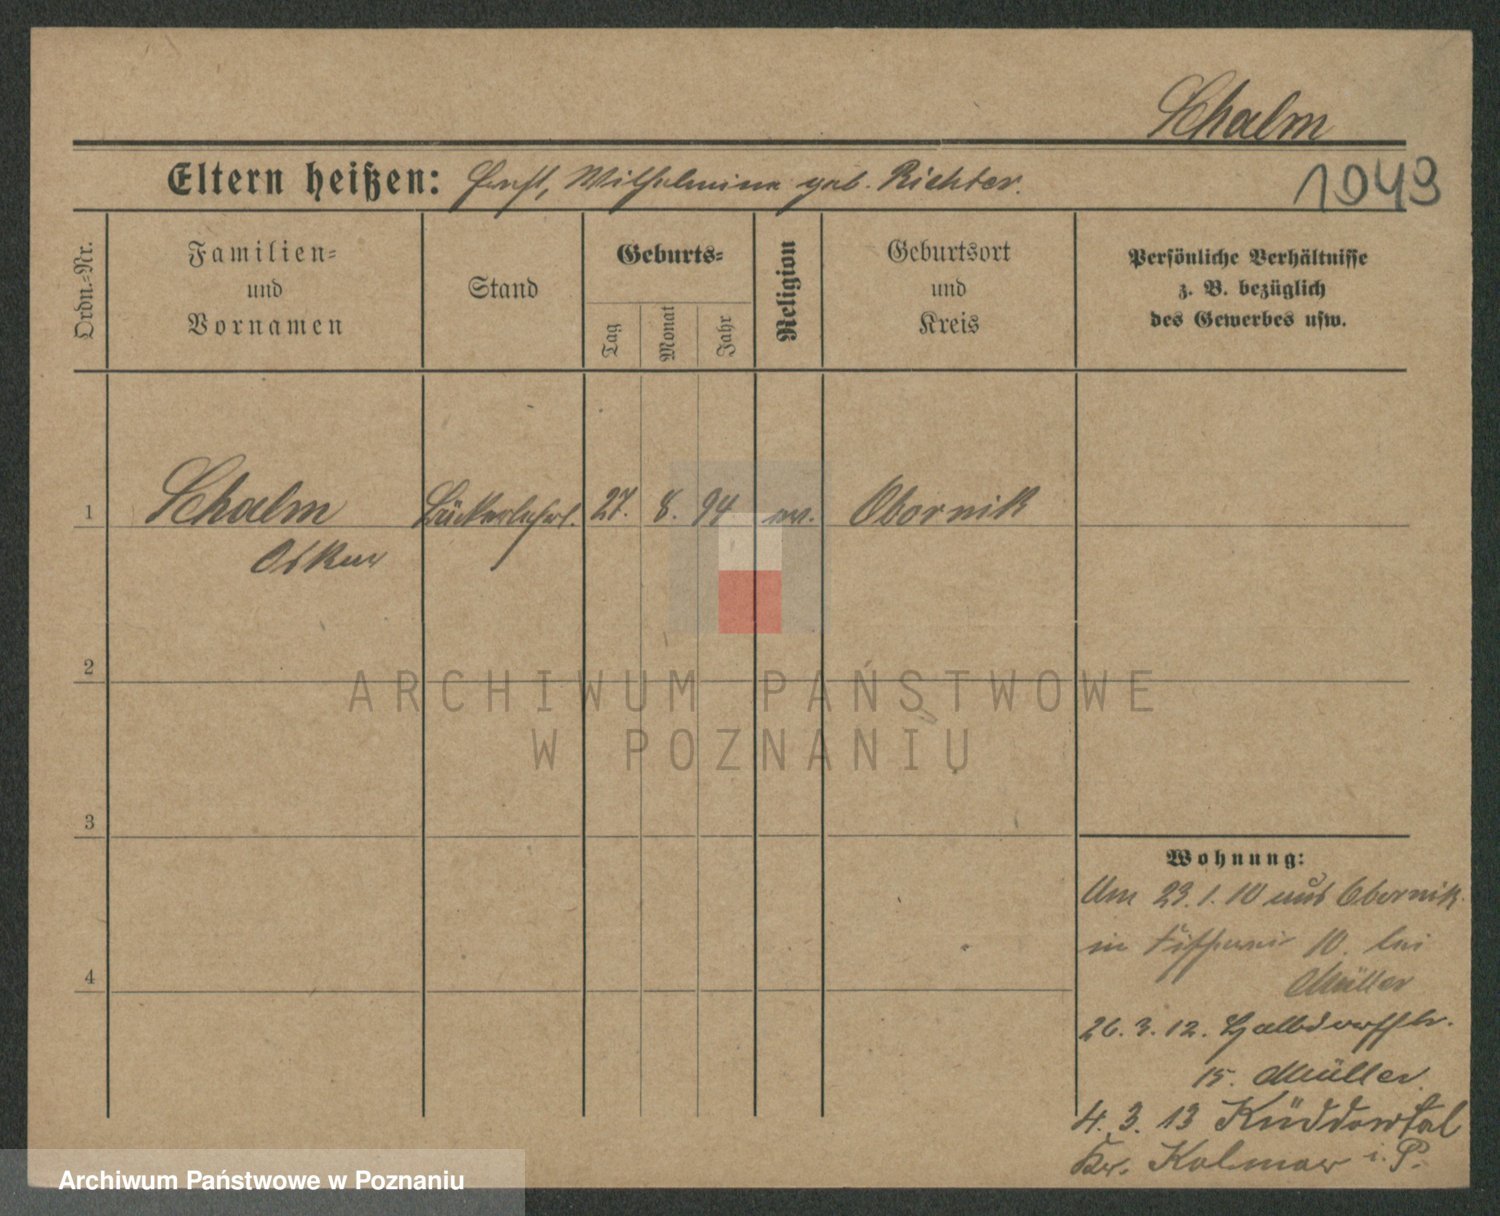 Schalm
Eltern heißen: Ernst, Wilhelmina geb. Richter.
1049
Ordn.-Nr.
Familien-
und
Vornamen
Stand
Geburts-
Tag
Monat
Jahr
Religion
Geburtsort
und
Kreis
Persönliche Verhältnisse
z. B. bezüglich
des Gewerbes usw.
1 Schalm Bäckerlehrl. 27. 8. 94 ev. Obornik
Oskar
2
3
4
Wohnung:
Am 23.1.10 aus Obornik
in 10. bei
Müller
26. 3. 12. Halbdorfstr.
15. Müller.
4. 3. 13 Küddowtal
Kr. Kolmar i. P.
ARCHIWUM PAŃSTWOWE
W POZNANIU
Archiwum Państwowe w Poznaniu